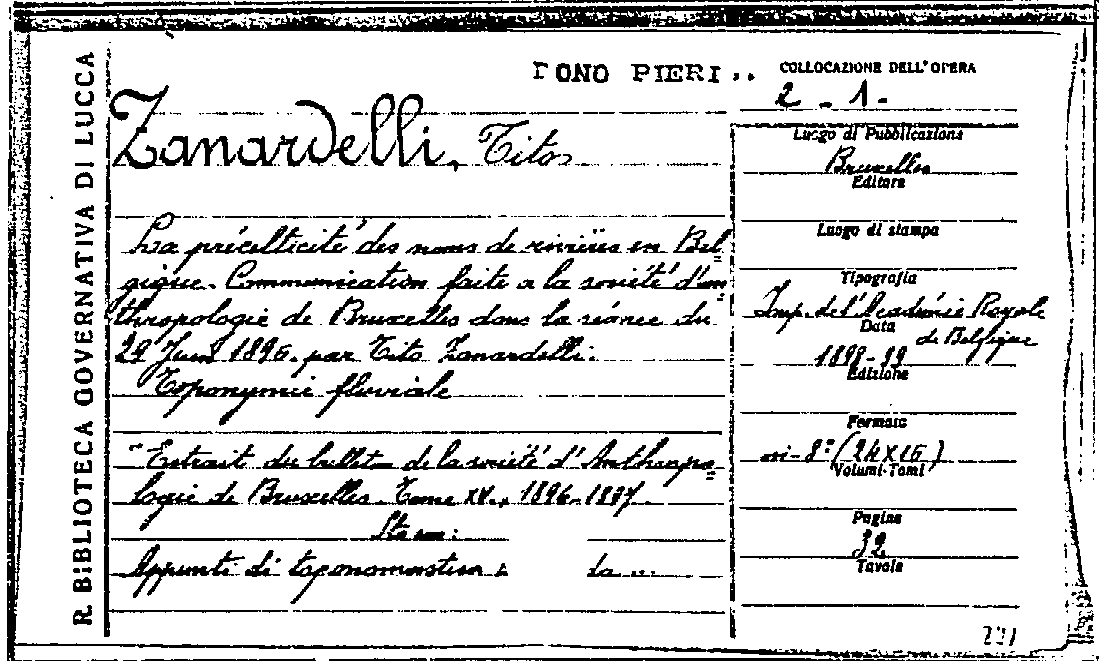 R. BIBLIOTECA GOVERNATIVA DI LUCCA
DONO PIERI..
COLLOCAZIONE DELL'OPERA
2 - 1 -
Zanardelli, Tito
La précelticité des noms de rivières en Bel=
gique. Communication faite a la société d'an=
thropologie de Bruxelles dans la séance du
29 Juin 1896. par Tito Zanardelli.
Toponymie fluviale
"Extrait du bulletin de la société d'Anthropo=
logie de Bruxelles. Tome XV., 1896-1897.
Appunti di
Luogo di Pubblicazione
Bruxelles
Editore
Luogo di stampa
Tipografia
Imp. de l'Académie Royale
de Belgique
Data
1898-99
Edizione
Formato
in-8° (24X16)
Volumi-Tomi
Pagine
32
Tavole